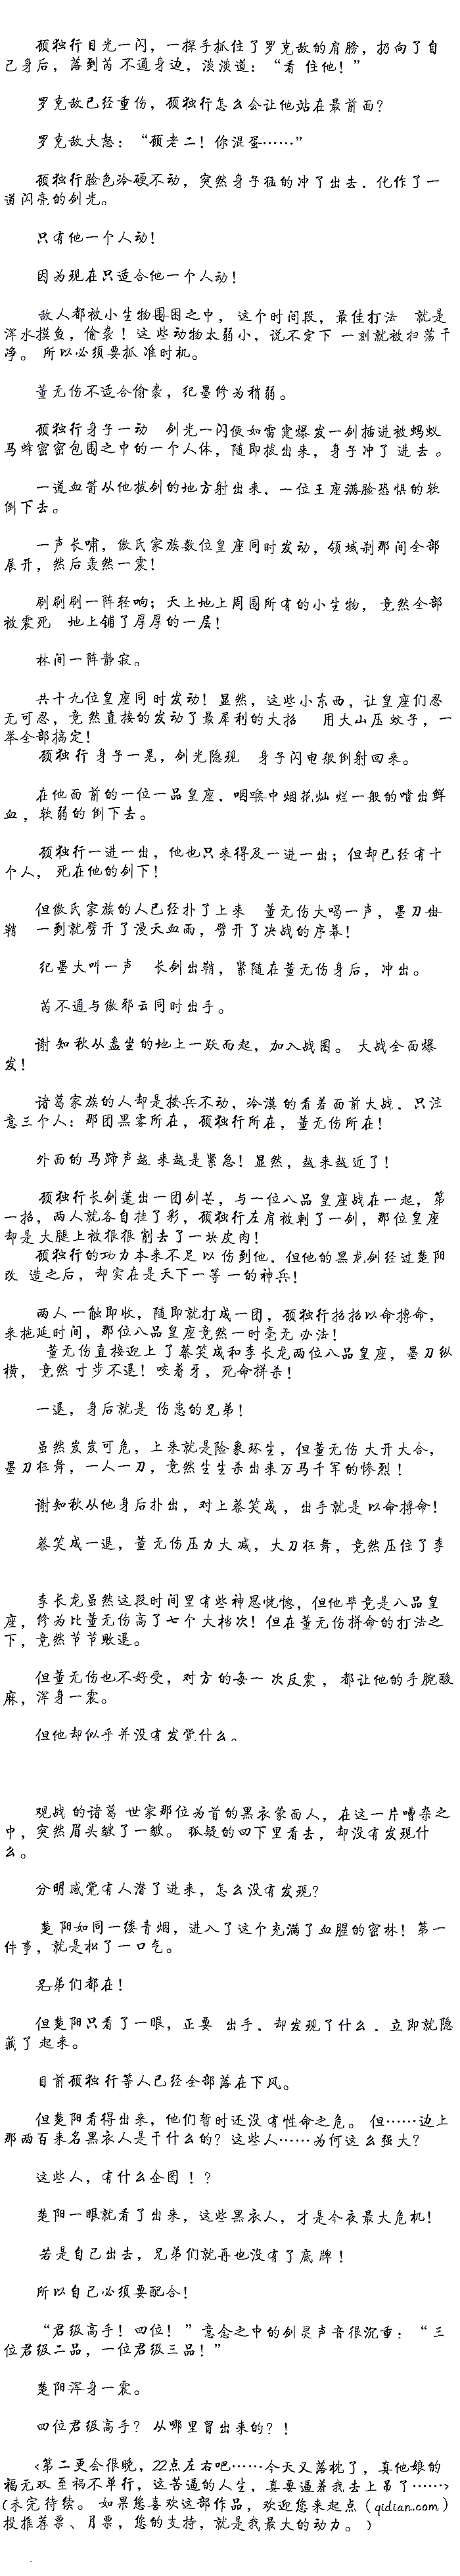 顾独行目光一闪，一探手抓住了罗克敌的肩膀，扔向了自
己身后，落到芮不通身边，淡淡道：“看 住他！”
罗克敌已经重伤，顾独行怎么会让他站在最前面？
罗克敌大怒：“顾老二！你混蛋……”
顾独行脸色冷硬不动，突然身子猛的冲了出去，化作了一
道闪亮的剑光。
只有他一个人动！
因为现在只适合他一个人动！
敌人都被小生物围困之中，这个时间段，最佳打法 就是
浑水摸鱼，偷袭！这些动物太弱小，说不定下一刻就被扫荡干
净。 所以必须要抓准时机。
董无伤不适合偷袭，纪墨修为稍弱。
顾独行身子一动 剑光一闪便如雷霆爆发一剑插进被蚂蚁
马蜂密密包围之中的一个人体，随即拔出来，身子冲了进去。
一道血箭从他拔剑的地方射出来，一位王座满脸恐惧的软
倒下去。
一声长啸，傲氏家族数位皇座同时发动，领域刹那间全部
展开，然后轰然一震！
刷刷刷一阵轻响；天上地上周围所有的小生物，竟然全部
被震死 地上铺了厚厚的一层！
林间一阵静寂。
共十九位皇座同时发动！显然，这些小东西，让皇座们忍
无可忍，竟然直接的发动了最犀利的大招 用大山压蚊子，一
举全部搞定！
顾独行身子一晃，剑光隐现 身子闪电般倒射回来。
在他面前的一位一品皇座，咽喉中烟花灿烂一般的喷出鲜
血，软弱的倒下去。
顾独行一进一出，他也只来得及一进一出；但却已经有十
个人，死在他的剑下！
但傲氏家族的人已经扑了上来 董无伤大喝一声，墨刀出
鞘 一到就劈开了漫天血雨，劈开了决战的序幕！
纪墨大叫一声 长剑出鞘，紧随在董无伤身后，冲出。
芮不通与傲邪云同时出手。
谢知秋从盘坐的地上一跃而起，加入战圈。 大战全面爆
发！
诸葛家族的人却是按兵不动，冷漠的看着面前大战，只注
意三个人：那团黑雾所在，顾独行所在，董无伤所在！
外面的马蹄声越来越是紧急！显然，越来越近了！
顾独行长剑蓬出一团剑芒，与一位八品皇座战在一起，第
一招，两人就各自挂了彩，顾独行左肩被刺了一剑，那位皇座
却是大腿上被狠狠削去了一块皮肉！
顾独行的功力本来不足以伤到他，但他的黑龙剑经过楚阳
改 造之后，却实在是天下一等一的神兵！
两人一触即收，随即就打成一团，顾独行招招以命搏命，
来拖延时间，那位八品皇座竟然一时毫无办法！
董无伤直接迎上了蔡笑成和李长龙两位八品皇座，墨刀纵
横，竟然寸步不退！咬着牙，死命拼杀！
一退，身后就是 伤患的兄弟！
虽然岌岌可危，上来就是险象环生，但董无伤大开大合，
墨刀狂舞，一人一刀，竟然生生杀出来万马千军的惨烈！
谢知秋从他身后扑出，对上蔡笑成，出手就是以命搏命！
蔡笑成一退，董无伤压力大减，大刀狂舞，竟然压住了李
李长龙虽然这段时间里有些神思恍惚，但他毕竟是八品皇
座，修为比董无伤高了七个大档次！但在董无伤拼命的打法之
下，竟然节节败退。
但董无伤也不好受，对方的每一次反震，都让他的手腕酸
麻，浑身一震。
但他却似乎并没有发觉什么。
观战的诸葛世家那位为首的黑衣蒙面人，在这一片嘈杂之
中，突然眉头皱了一皱。 狐疑的四下里看去，却没有发现什
么。
分明感觉有人潜了进来，怎么没有发现？
楚阳如同一缕青烟，进入了这个充满了血腥的密林！第一
件事，就是松了一口气。
兄弟们都在！
但楚阳只看了一眼，正要 出手，却发现了什么，立即就隐
藏了起来。
目前顾独行等人已经全部落在下风。
但楚阳看得出来，他们暂时还没有性命之危。 但……边上
那两百来名黑衣人是干什么的？这些人……为何这么强大？
这些人，有什么企图！？
楚阳一眼就看了出来，这些黑衣人，才是今夜最大危机！
若是自己出去，兄弟们就再也没有了底牌！
所以自己必须要配合！
“君级高手！四位！”意念之中的剑灵声音很沉重：“三
位君级二品，一位君级三品！”
楚阳浑身一震。
四位君级高手？从哪里冒出来的？！
<第二更会很晚，22点左右吧……今天又落枕了，真他娘的
福无双至祸不单行，这苦逼的人生，真要逼着我去上吊了……>
(未完待续。 如果您喜欢这部作品，欢迎您来起点（qidian.com）
投推荐票、月票，您的支持，就是我最大的动力。）